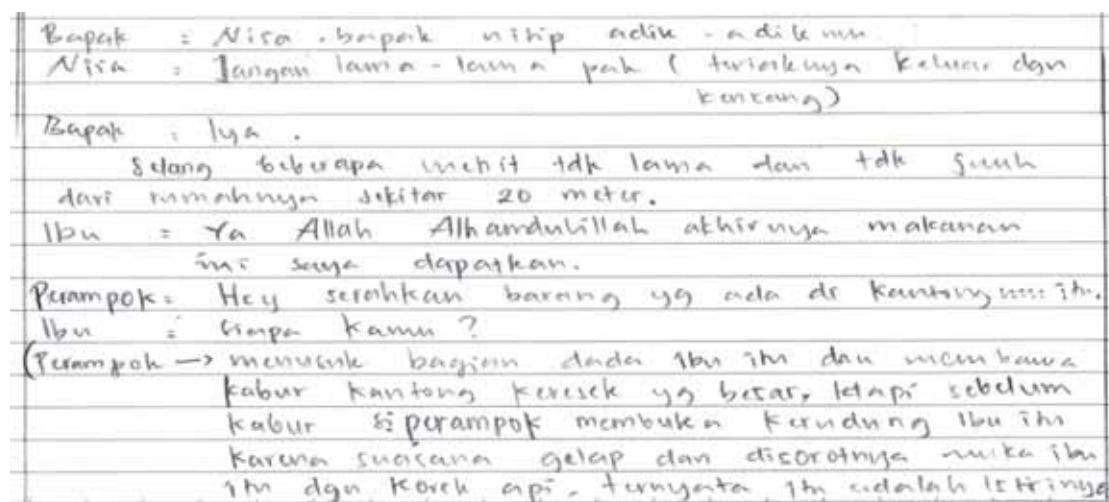 Bapak : Nisa . bapak nitip adik - adikmu
Nisa : Jangan lama - lama pak ( teriaknya keluar dgn
kencang)
Bapak : Iya .
Selang beberapa menit tdk lama dan tdk jauh
dari rumahnya sekitar 20 meter.
Ibu : Ya Allah Alhamdulillah akhirnya makanan
ini saya dapatkan.
Perampok : Hey serahkan barang yg ada di kantong itu.
Ibu : Siapa kamu ?
(Perampok → menusuk bagian dada Ibu itu dan membawa
kabur kantong keresek yg besar, tetapi sebelum
kabur si perampok membuka kerudung Ibu itu
karena suasana gelap dan disorotnya muka ibu
itu dgn korek api. ternyata itu adalah Istrinya